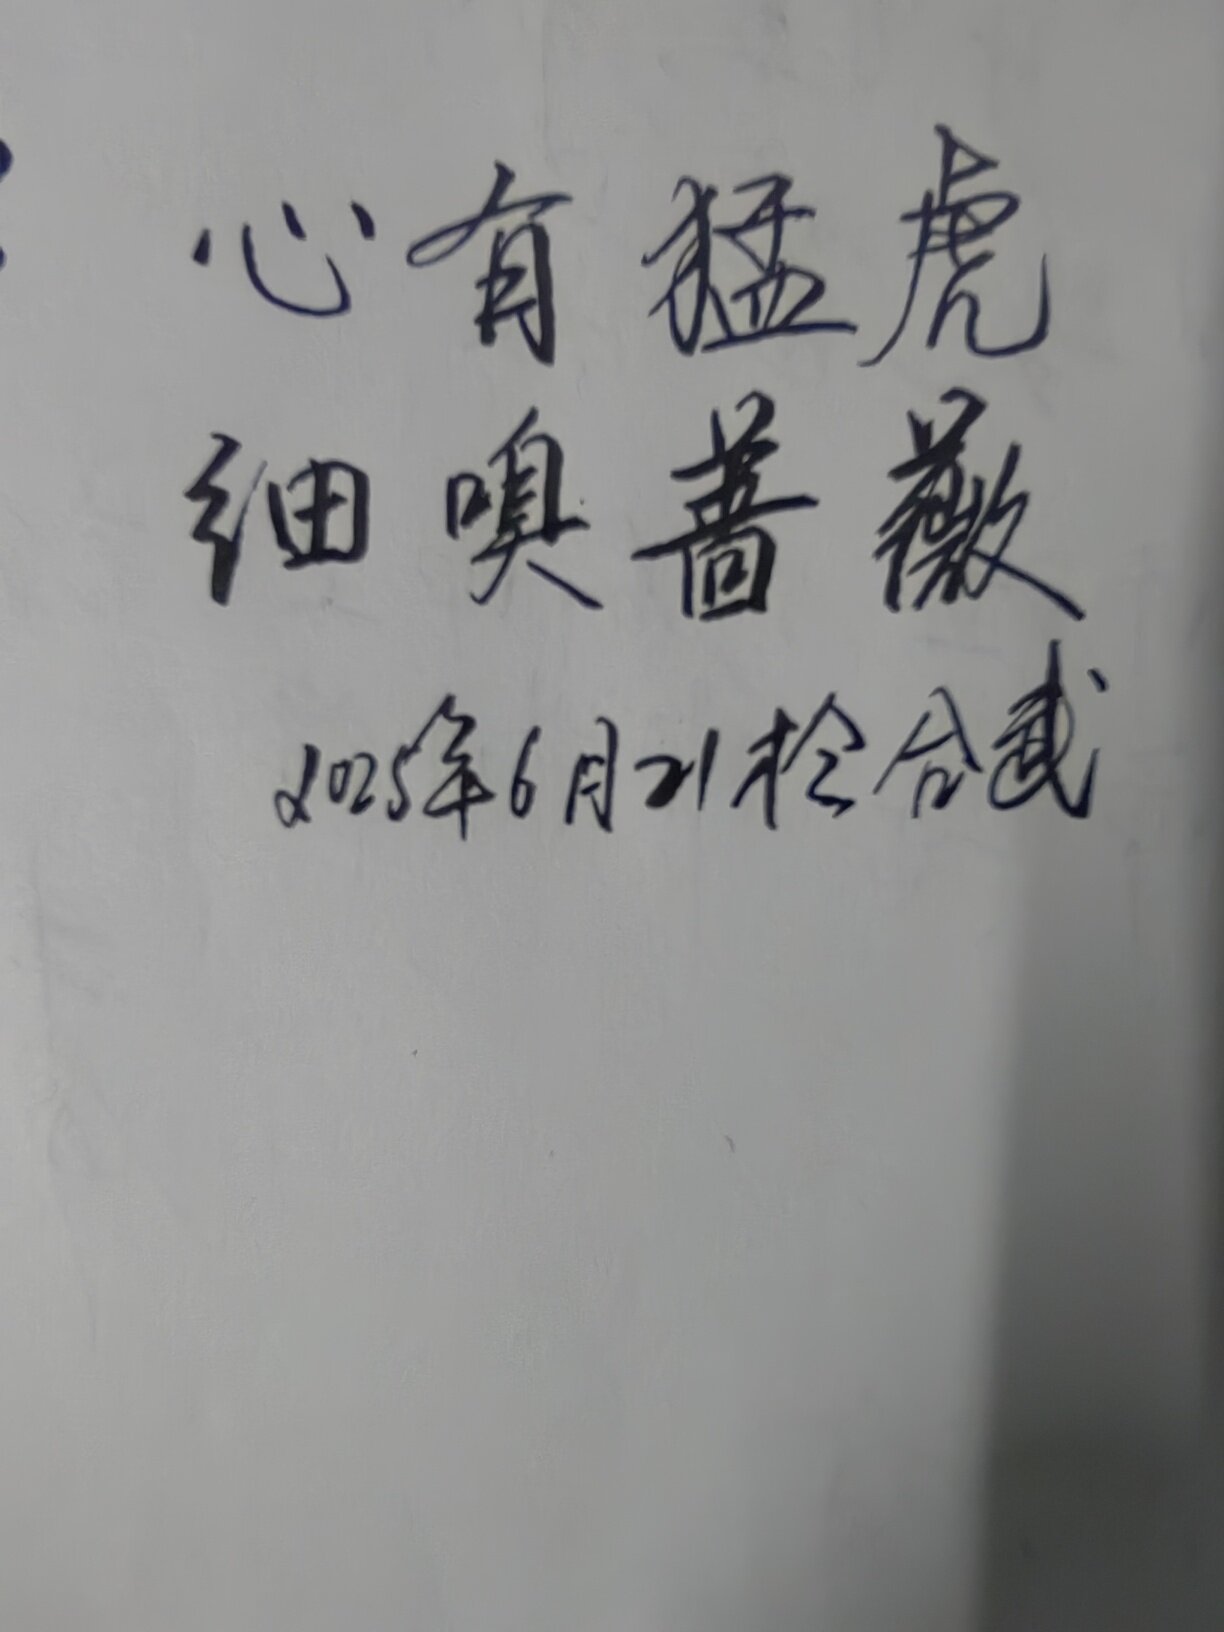 心有猛虎
细嗅蔷薇
2025年6月21于合武